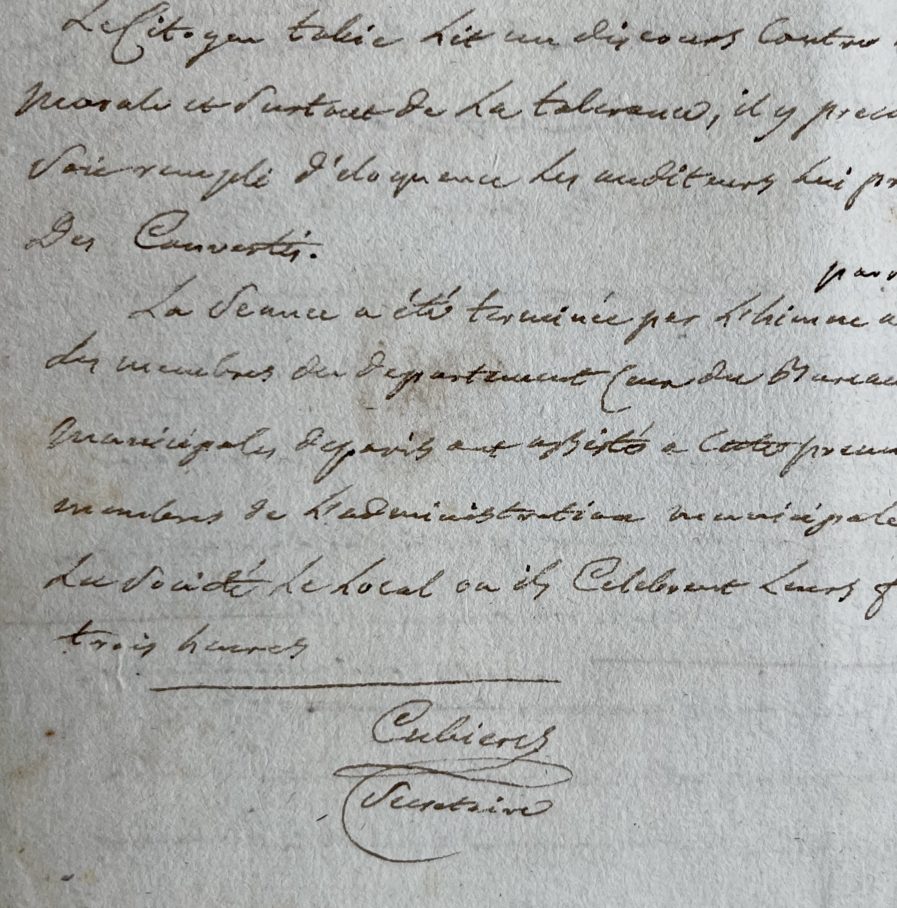 Le Citoyen tobie Lit un discours Contre
morale et Surtout de La tolerance, il y prec
Soie rempli d'éloquence Les auditeurs Lui pr
Des Convertis.
par
La Seance a été terminée par L'himne a
des membres du departement Central du Bureau
municipales de paris ont assisté a Cette premi
membres de L'administration municipale
La Société Le Local ou ils Celebrent Leurs f
trois heures
Cubieres
Secretaire